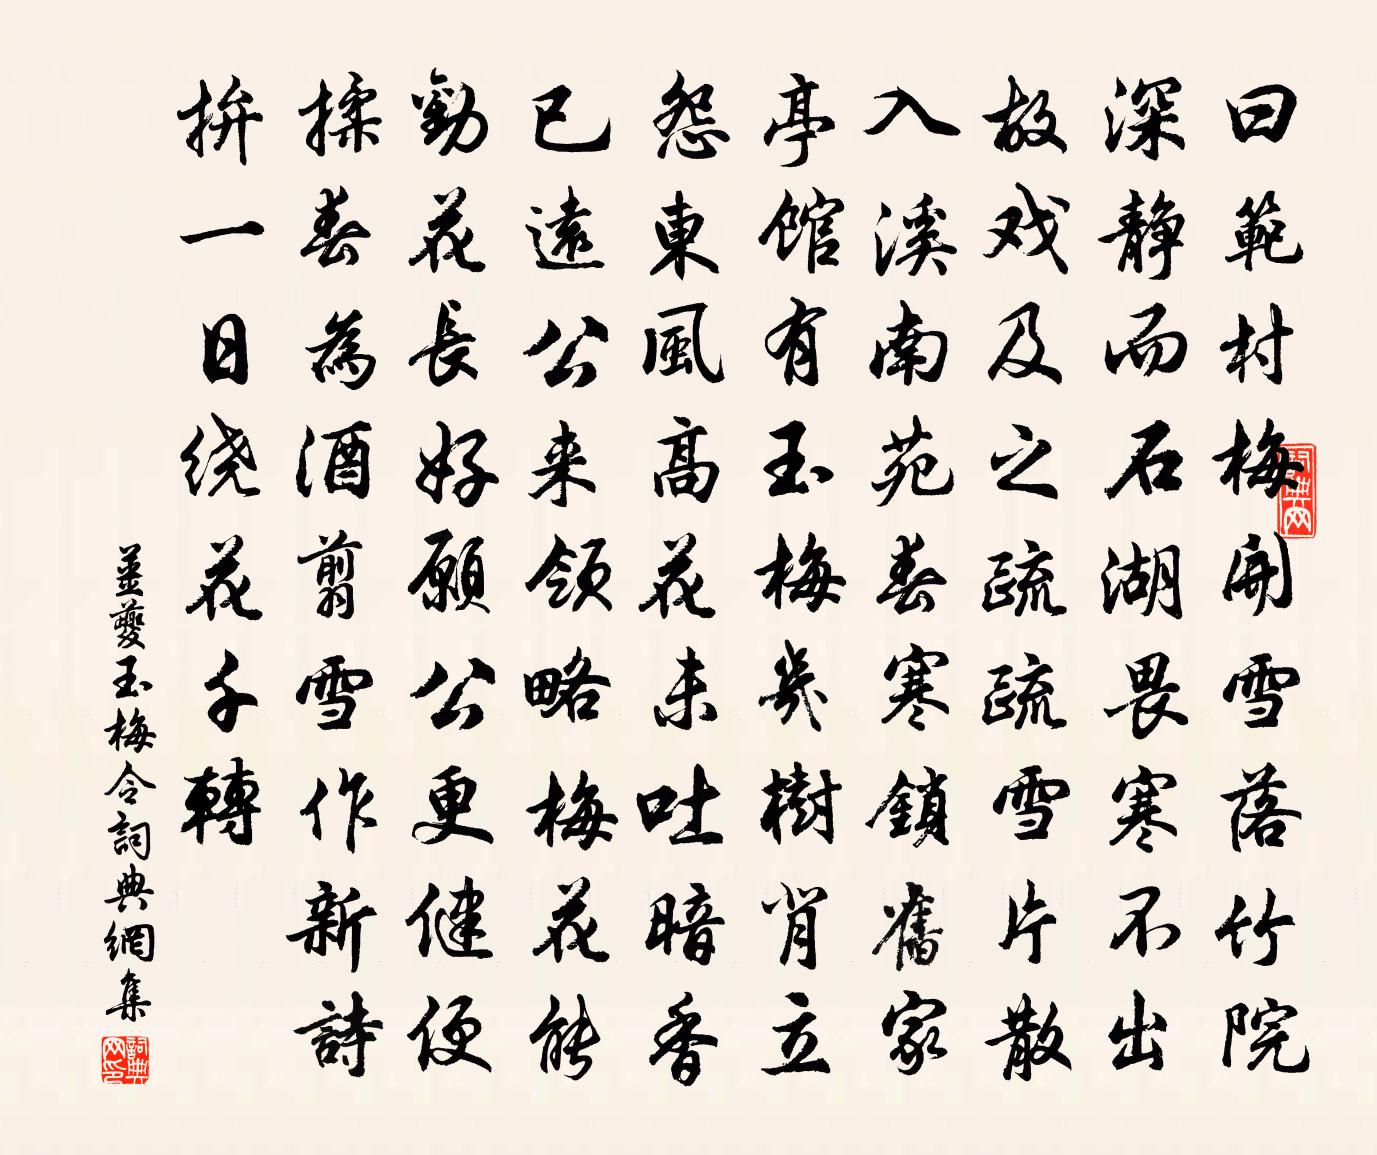 曰範村梅開雪落竹院
深静而石湖畏寒不出
故戏及之疏疏雪片散
入溪南苑春寒鎖舊家
亭館有玉梅幾樹背立
怨東風高花未吐暗香
已遠公来領略梅花能
勸花長好願公更健便
揉春為酒剪雪作新詩
拚一日绕花千轉
薑夔玉梅令詞典網集
詞典网
詞典网印